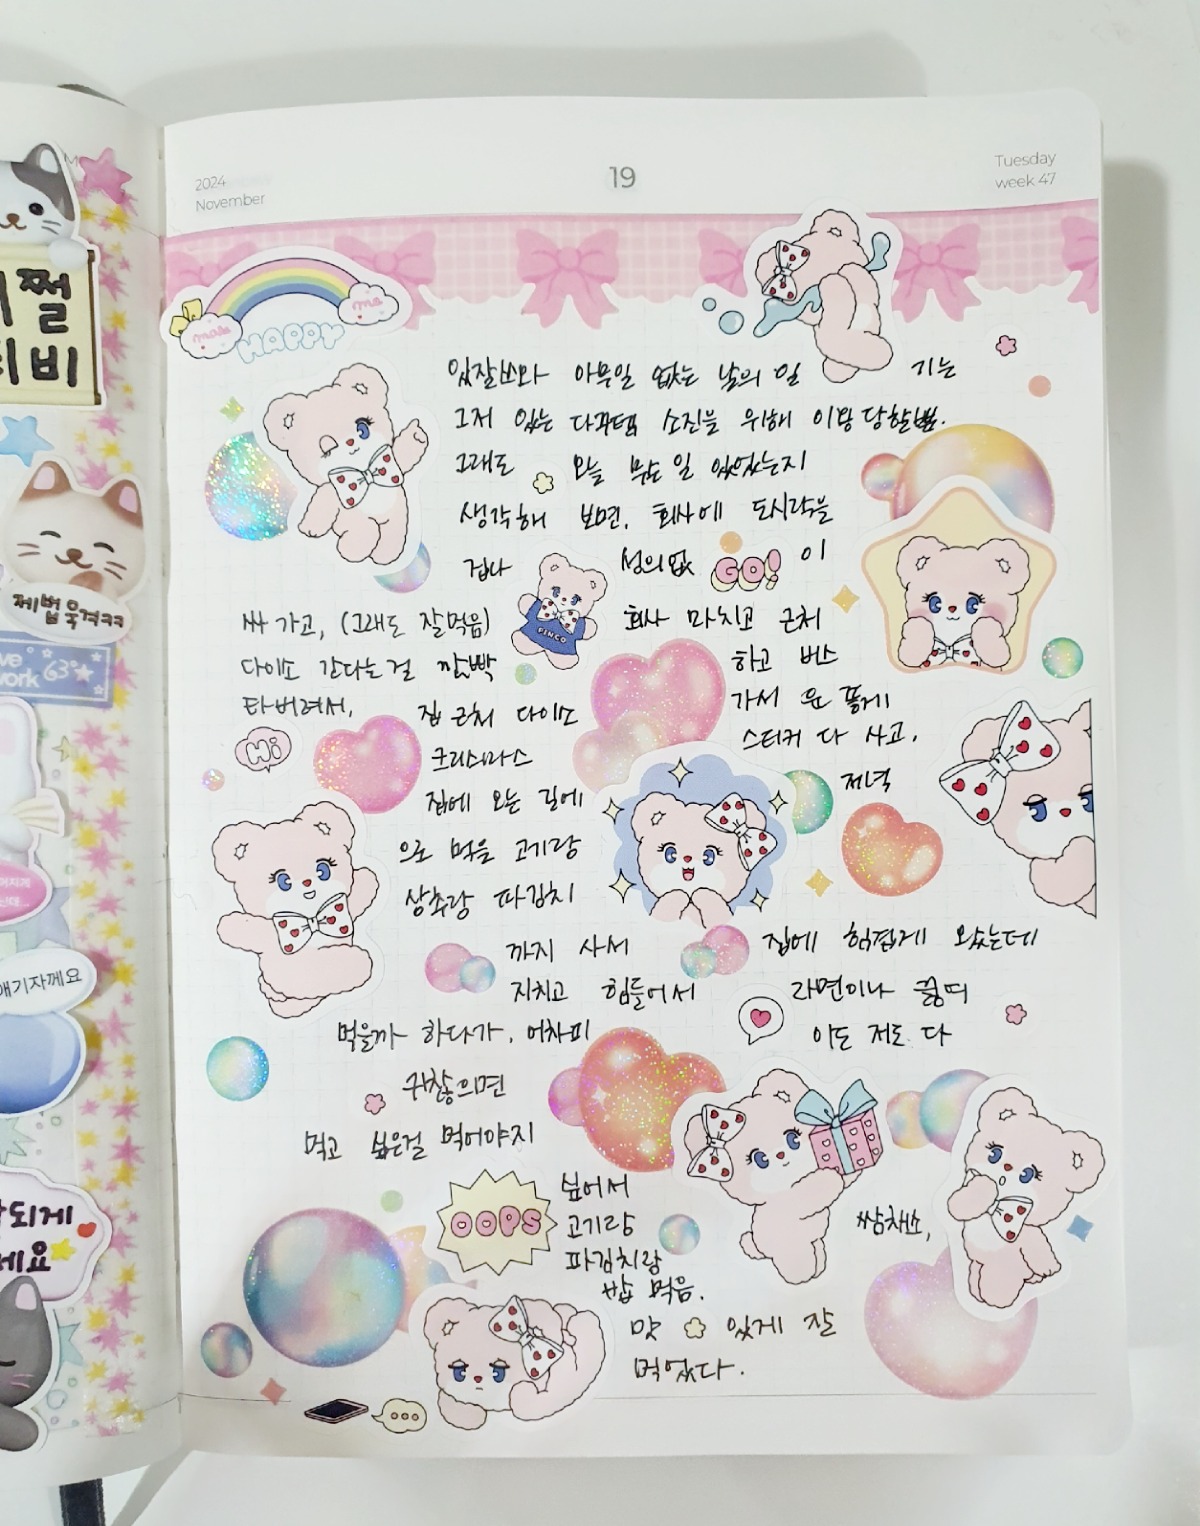 2024
November
19
Tuesday
week 47
HAPPY
아무일 없는 날의 일 기는
그저 있는 다꾸템 소진을 위해 이용당할뿐.
그래도 오늘 무슨일 있었는지
생각해 보면, 회사에 도시락을
겁나 성의없 GO! 이
싸가고, (그래도 잘먹음) 회사 마치고 근처
PINCO
다이소 간다는걸 깜빡 하고 버스
타버려서, 집근처 다이소 가서 운 좋게
Hi
크리스마스 스티커 다 사고,
집에 오는 길에 저녁
으로 먹을 고기랑
상추랑 파김치
까지 사서 집에 힘겹게 왔는데
지치고 힘들어서 라면이나 끓여
먹을까 하다가, 어차피 이도 저도 다
귀찮으면
먹고 싶은걸 먹어야지
싶어서
OOPS
고기랑 쌈채소,
파김치랑
밥 먹음.
맛있게 잘
먹었다.
쩔
티비
제법웃겨ㅋㅋ
얘기자께요
되게
세요